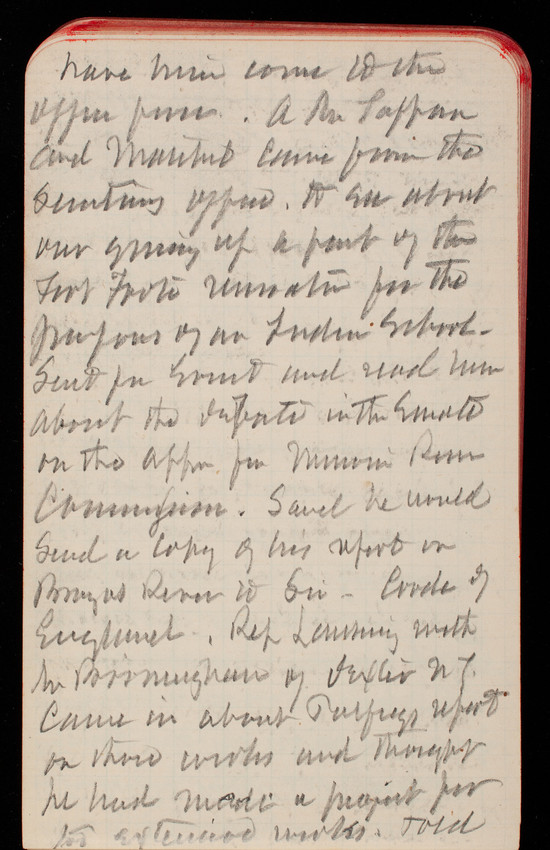 have him come to the
office . A Mr Tappan
and came from the
Secretarys office. to see about
our giving up a part of the
Fort Foote reservation for the
purpose of an Indian School-
Sent for and read him
about the debate in the Senate
on the Appn for Missouri River
Commission. Said he would
send a copy of his report on
Brazos River to Sir - Coode of
England. Rep Lansing with
Mr of Dexter N.Y.
came in about report
on those works and thought
he had made a project for
extensive works. Told